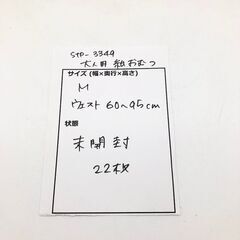 STP-3349
大人用 紙おむつ
サイズ (幅×奥行×高さ)
M
ウエスト 60~95cm
状態
未開封
22枚